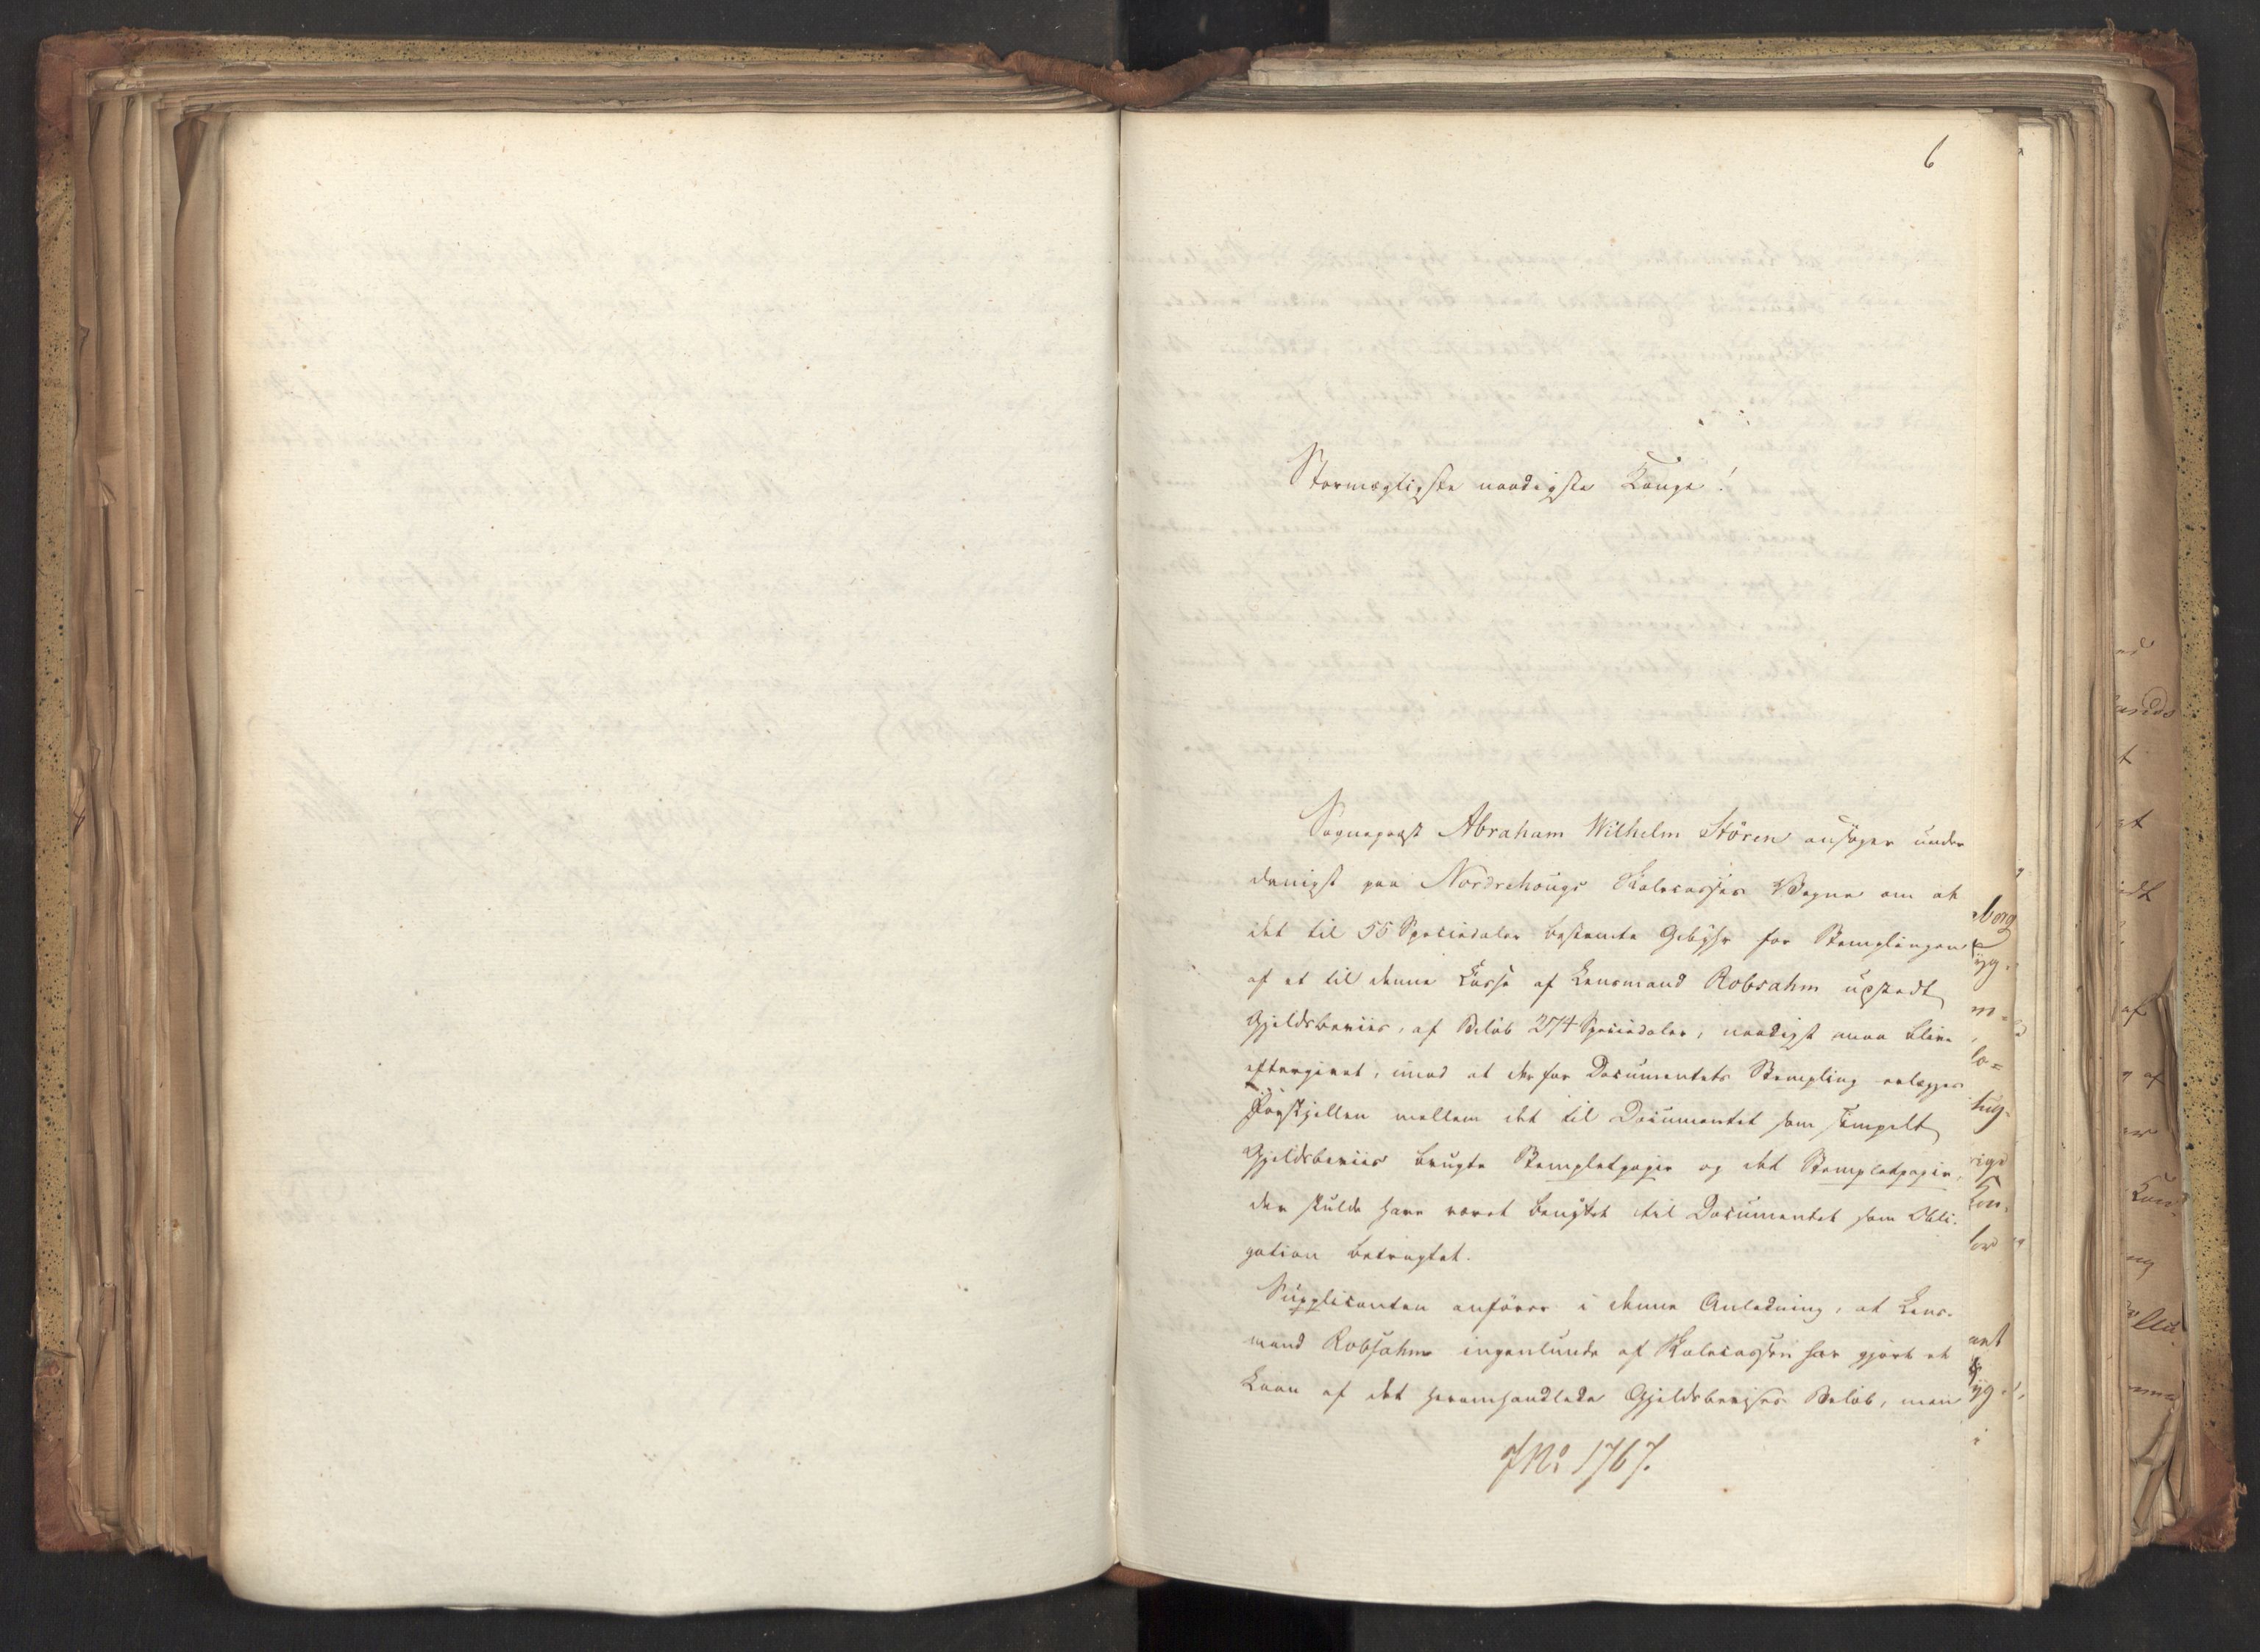 6
Stormægtigste naadigste Konge!
Sognepræst Abraham Wilhelm Stören ansøger under
danigst paa Nordrehougs Skolecasses Vegne om at
det til 55 Speciedaler bestemte Gebyhr for Stemplingen
af et til denne Casse af Lensmand Robsahm udstædt
Gjeldsbeviis, af Beløb 274 Speciedaler, naadigst maa blive
eftergivet, imod at der for Documentets Stempling erlægges
Forskjellen mellem det til Documentet som simpelt
Gjeldsbeviis brugte Stempletpapir og det Stempletpapir,
der skulde have været benyttet til Documentet som Obli-
gation betragtet.
Supplicanten anfører i denne Anledning, at Lens-
mand Robsahm ingenlunde af Skolecassen har gjort et
Laan af det heromhandlede Gjeldsbevises Beløb, men
JNo 1767.